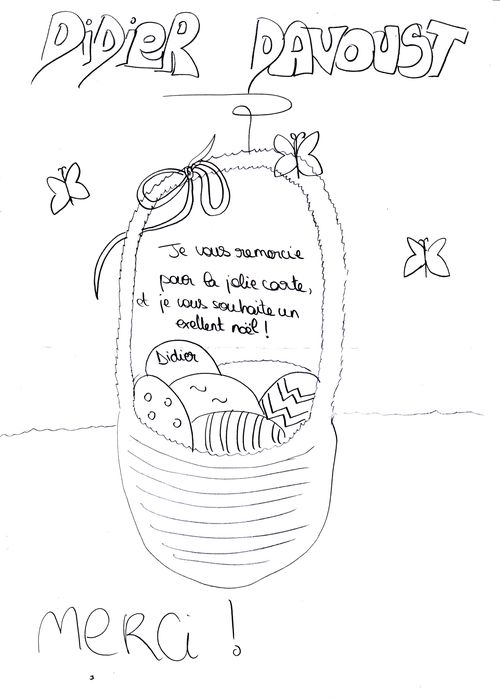 DiDieR DAVOUST
Je vous remercie
pour la jolie carte,
et je vous souhaite un
exellent noël !
Didier
MeRCi !